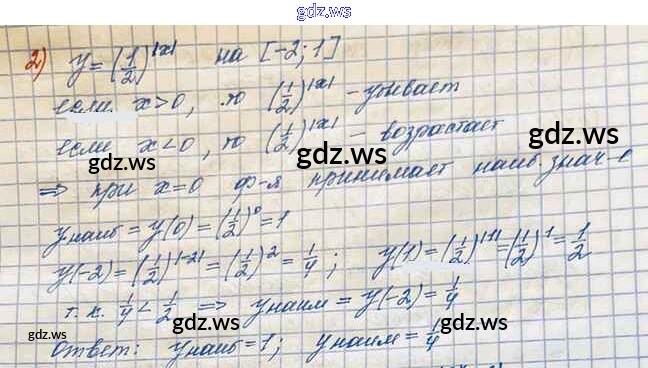 gdz.ws
2) y = (1/2)^|x| на [-2; 1]
если x > 0, то (1/2)^|x| - убывает
если x < 0, то (1/2)^|x| - возрастает
gdz.ws
gdz.ws
gdz.ws
⇒ при x = 0 ф-я принимает наиб. знач-е
y наиб = y(0) = (1/2)^0 = 1
gdz.ws
gdz.ws
y(-2) = (1/2)^|-2| = (1/2)^2 = 1/4; y(1) = (1/2)^|1| = (1/2)^1 = 1/2
т.к. 1/4 < 1/2 ⇒ y наим = y(-2) = 1/4
gdz.ws
gdz.ws
gdz.ws
Ответ: y наиб = 1; y наим = 1/4